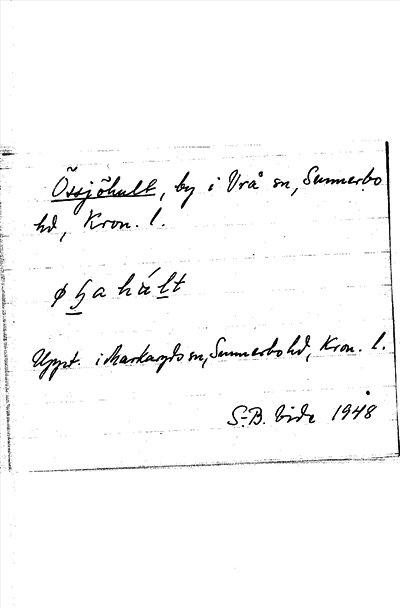 Össjöhult, by i Vrå sn, Sunnerbo
hd, Kron. l.
Uppt. i Markaryds sn, Sunnerbo hd, Kron. l.
S.-B. Vide 1948